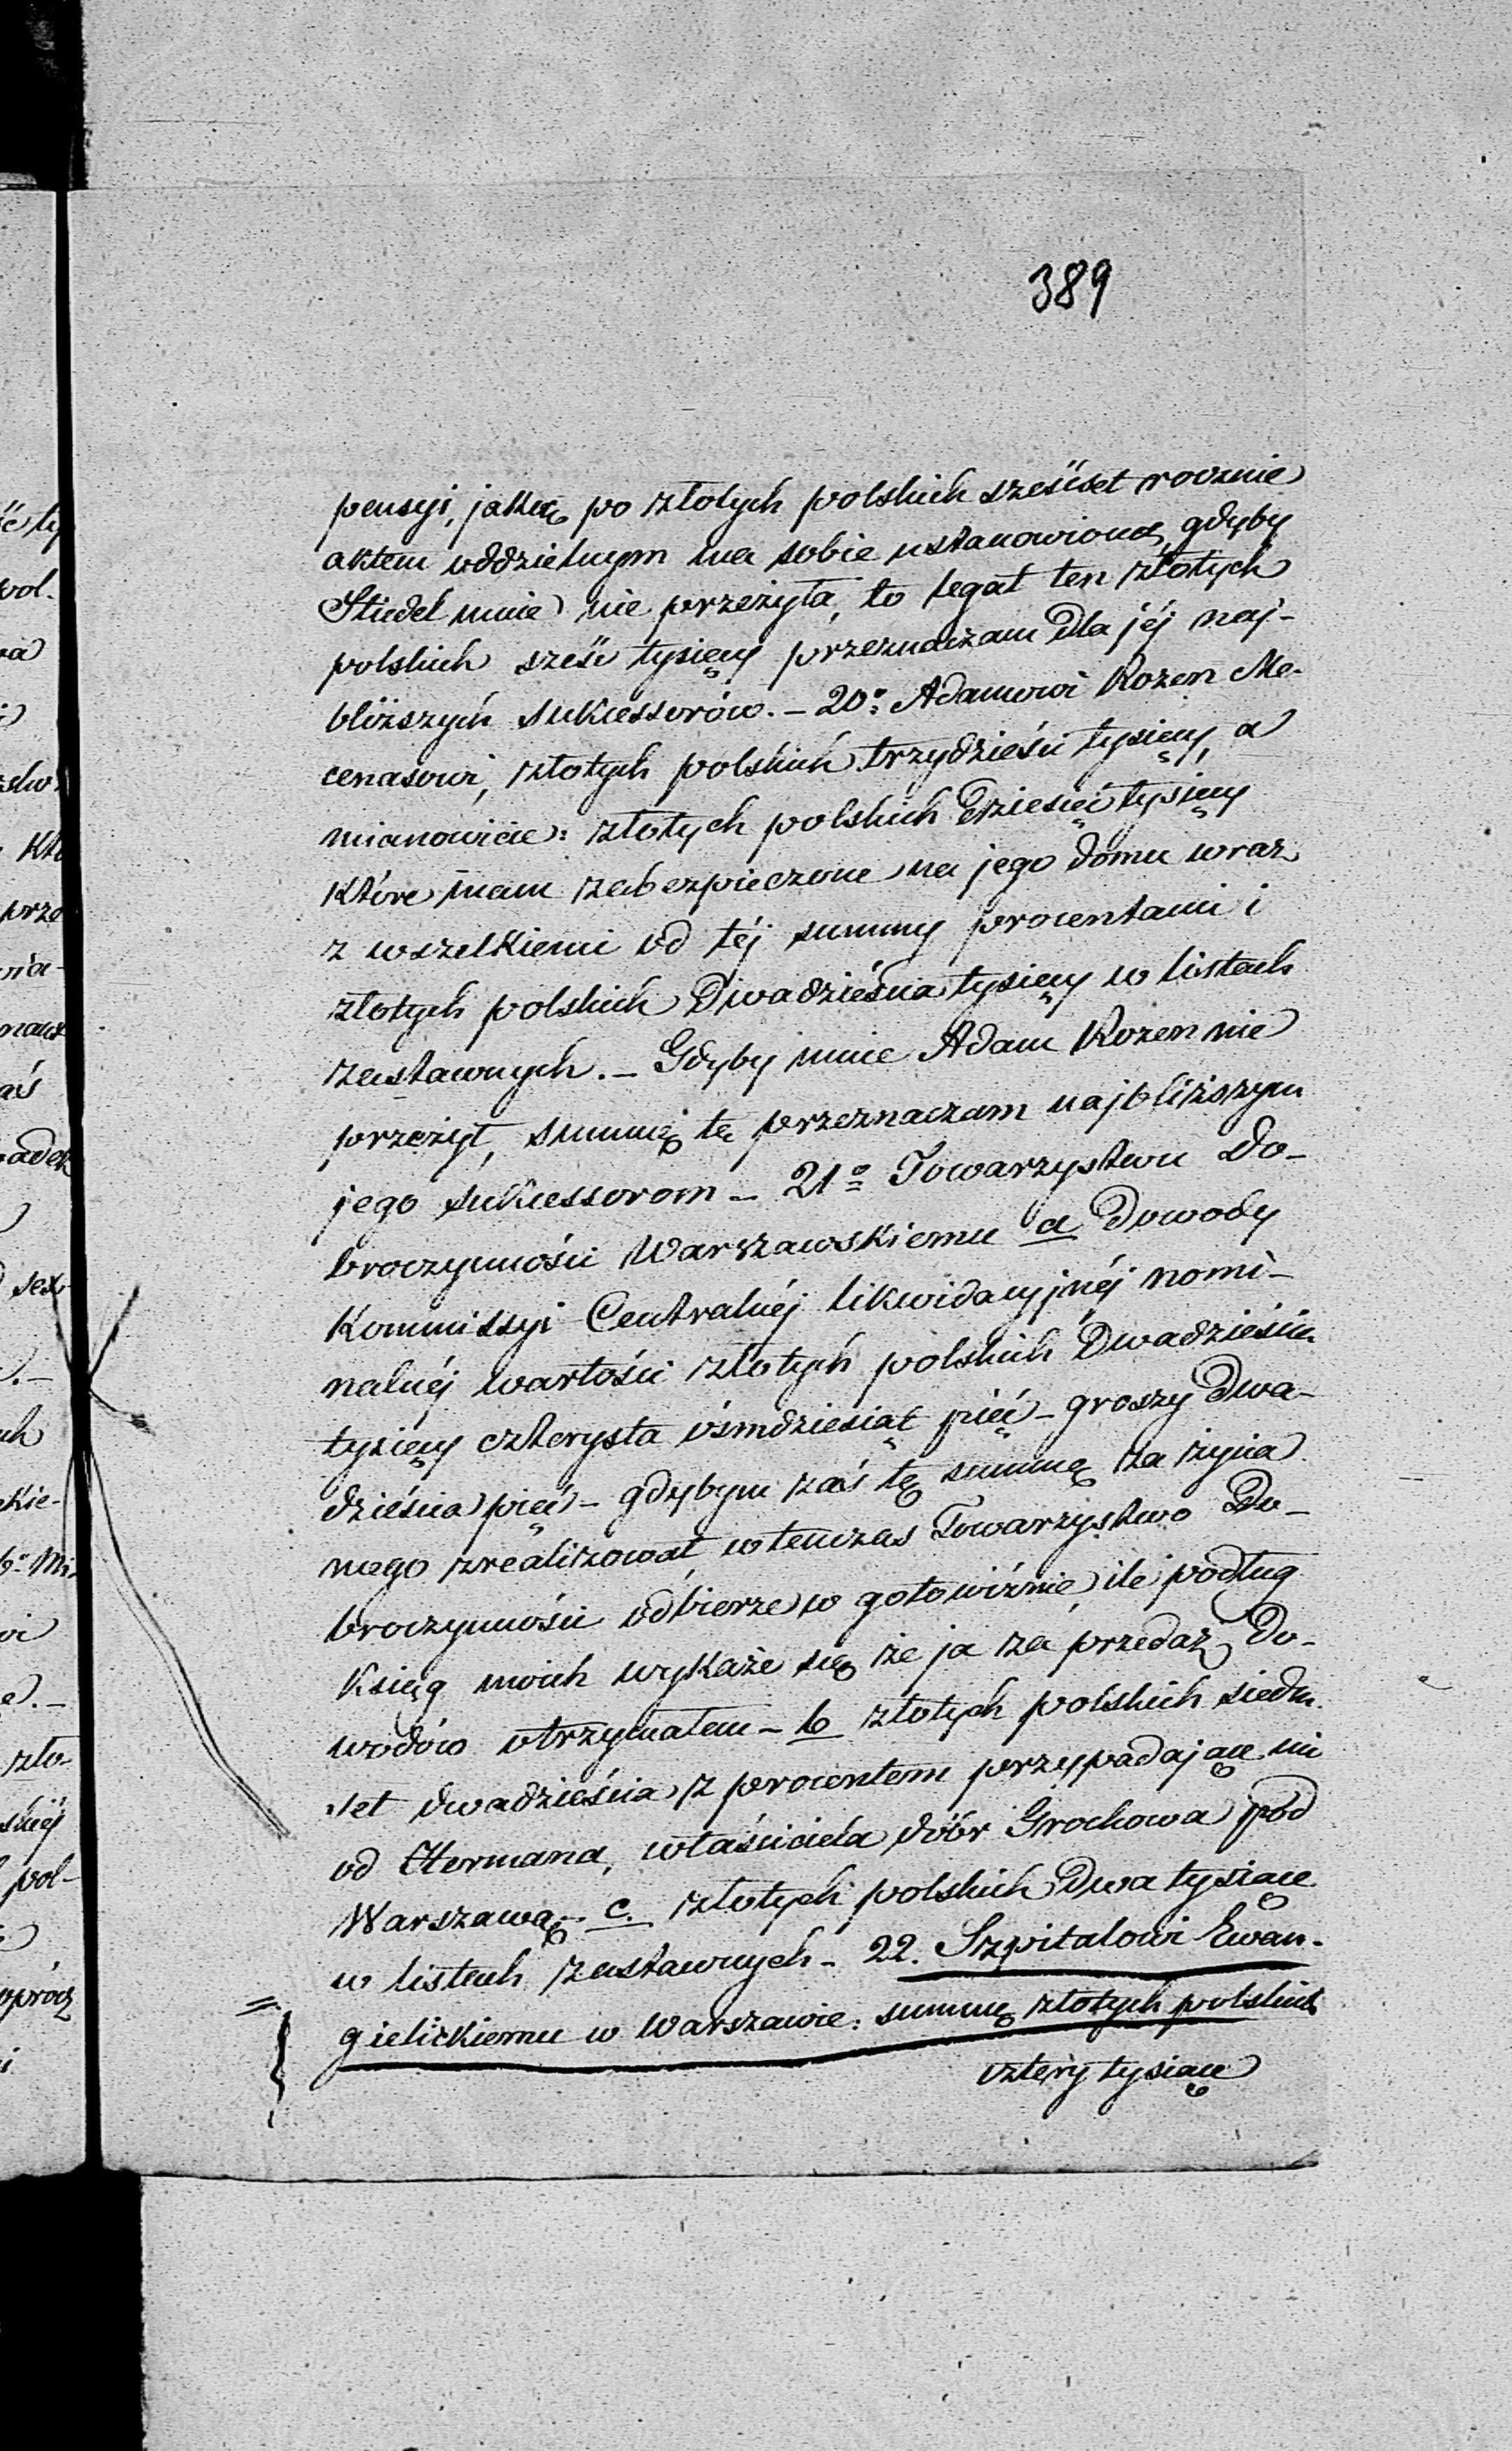 389
pensyi, jaką po złotych polskich sześćset rocznie
aktem oddzielnym na sobie ustanowioną, gdyby
Stiedel mnie nie przeżyła, to legat ten złotych
polskich sześć tysięcy przeznaczam dla jéj naj-
bliższych sukcessorów. – 20o Adamowi Rozen Me-
cenasowi, złotych polskich trzydzieści tysięcy, a
mianowicie: złotych polskich dziesięć tysięcy
które mam zabezpieczone na jego domu wraz
z wszelkiemi od téj summy procentami i
złotych polskich Dwadzieścia tysięcy w listach
zastawnych. – Gdyby mnie Adam Rozen nie
przeżył, summę tę przeznaczam najbliższym
jego sukcessorom – 21o Towarzystwu Do-
broczynności Warszawskiemu a Dowody
Kommissyi Centralnéj likwidacyjnéj nomi-
nalnéj wartości złotych polskich Dwadzieścia
tysięcy czterysta ośmdziesiąt pięć – groszy Dwa-
dzieścia pięć – gdybym zaś tę summę za życia
mego zrealizował, wtenczas Towarzystwo Do-
broczynności odbierze w gotowiźnie, ile podług
Ksiąg moich wykaże się że ja za przedaż do-
wodów otrzymałem – b złotych polskich siedm
set dwadzieścia z procentem przypadające mi
od Hermana, właściciela dóbr Grochowa pod
Warszawą – c. złotych polskich Dwa tysiące
w listach zastawnych – 22. Szpitalowi Ewan-
gielickiemu w Warszawie: summę złotych polskich
cztery tysiące